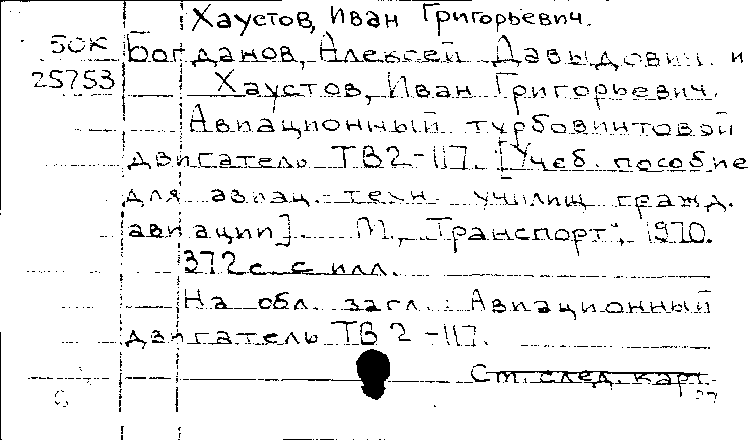 Хаустов, Иван Григорьевич.
50К Богданов, Алексей Давыдович и
25753 Хаустов, Иван Григорьевич.
Авиационный турбовинтовой
двигатель ТВ2-117. [Учеб. пособие
для авиац. техн. училищ гражд.
авиации]. М., "Транспорт", 1970.
372 с. с илл.
На обл. загл.: Авиационный
двигатель ТВ2-117.
См. след. карт.